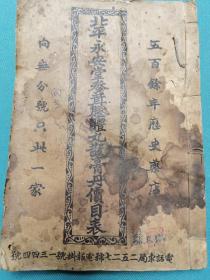 五百餘年歷史藥店
北平永安堂參茸膠醴丸散膏丹價目表
向無分號只此一家
電話東局二五二七號電報掛號一三四四號